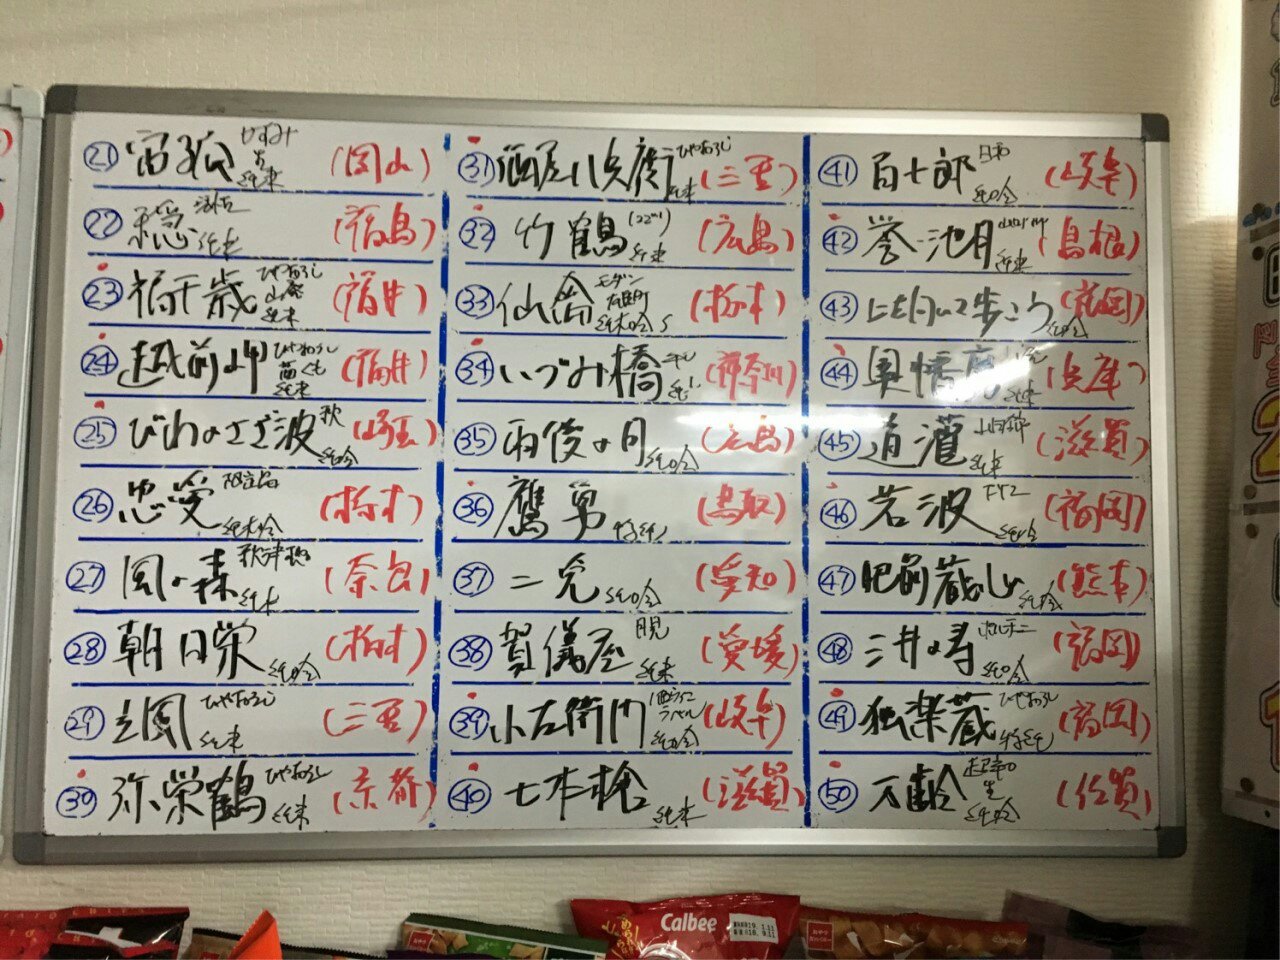 21 宵狐 純米 (岡山)
22 穏 純米 (福島)
23 福千歳 ひやおろし 山廃 純米 (福井)
24 越前岬 ひやおろし 純米 (福井)
25 びわのさざ波 秋 純吟 (埼玉)
26 忠愛 純米吟 (栃木)
27 風の森 秋津穂 純米 (奈良)
28 朝日栄 純吟 (栃木)
29 玄風 ひやおろし 純米 (三重)
30 弥栄鶴 ひやおろし 純米 (京都)
31 酒屋八兵衛 ひやおろし 純米 (三重)
32 竹鶴 純米 (広島)
33 仙禽 モダン 純米吟 (栃木)
34 いづみ橋 (神奈川)
35 雨後の月 純吟 (広島)
36 鷹勇 特純 (鳥取)
37 二兎 純吟 (愛知)
38 賀儀屋 月見 純米 (愛媛)
39 小左衛門 純吟 (岐阜)
40 七本槍 純米 (滋賀)
41 百十郎 純吟 (岐阜)
42 誉池月 純米 (島根)
43 上を向いて歩こう 純吟 (福岡)
44 奥播磨 純米 (兵庫)
45 道灌 純米 (滋賀)
46 若波 純吟 (福岡)
47 肥前蔵心 純吟 (熊本)
48 三井の寿 純吟 (福岡)
49 独楽蔵 ひやおろし 特純 (福岡)
50 万齢 生 純吟 (佐賀)
Calbee